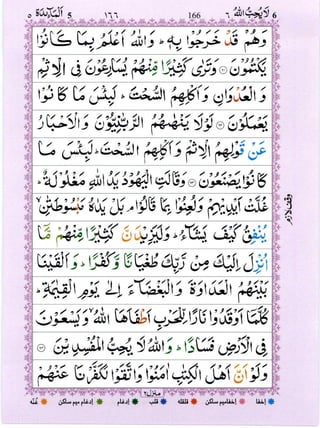 المآئدة ٥ ١٦٦ 166 لا يحب الله ٦
وَهُمْ قَدْ خَرَجُوْا بِهٖ ؕ وَاللّٰهُ اَعْلَمُ بِمَا كَانُوْا
يَكْتُمُوْنَ ۝ وَتَرٰى كَثِيْرًا مِّنْهُمْ يُسَارِعُوْنَ فِى الْاِثْمِ
وَالْعُدْوَانِ وَاَكْلِهِمُ السُّحْتَ ؕ لَبِئْسَ مَا كَانُوْا
يَعْمَلُوْنَ ۝ لَوْلَا يَنْهٰىهُمُ الرَّبّٰنِيُّوْنَ وَالْاَحْبَارُ
عَنْ قَوْلِهِمُ الْاِثْمَ وَاَكْلِهِمُ السُّحْتَ ؕ لَبِئْسَ مَا
كَانُوْا يَصْنَعُوْنَ ۝ وَقَالَتِ الْيَهُوْدُ يَدُ اللّٰهِ مَغْلُوْلَةٌ ؕ
غُلَّتْ اَيْدِيْهِمْ وَلُعِنُوْا بِمَا قَالُوْا ۘ بَلْ يَدٰهُ مَبْسُوْطَتٰنِ ۙ
يُنْفِقُ كَيْفَ يَشَآءُ ؕ وَلَيَزِيْدَنَّ كَثِيْرًا مِّنْهُمْ مَّاۤ
اُنْزِلَ اِلَيْكَ مِنْ رَّبِّكَ طُغْيَانًا وَّكُفْرًا ؕ وَاَلْقَيْنَا
بَيْنَهُمُ الْعَدَاوَةَ وَالْبَغْضَآءَ اِلٰى يَوْمِ الْقِيٰمَةِ ؕ
كُلَّمَاۤ اَوْقَدُوْا نَارًا لِّلْحَرْبِ اَطْفَاَهَا اللّٰهُ ۙ وَيَسْعَوْنَ
فِى الْاَرْضِ فَسَادًا ؕ وَاللّٰهُ لَا يُحِبُّ الْمُفْسِدِيْنَ ۝
وَلَوْ اَنَّ اَهْلَ الْكِتٰبِ اٰمَنُوْا وَاتَّقَوْا لَكَفَّرْنَا عَنْهُمْ
وقف لازم
منزل ٢
اخفا اخفا میم ساکن قلقلہ قلب ادغام ادغام میم ساکن غنّہ